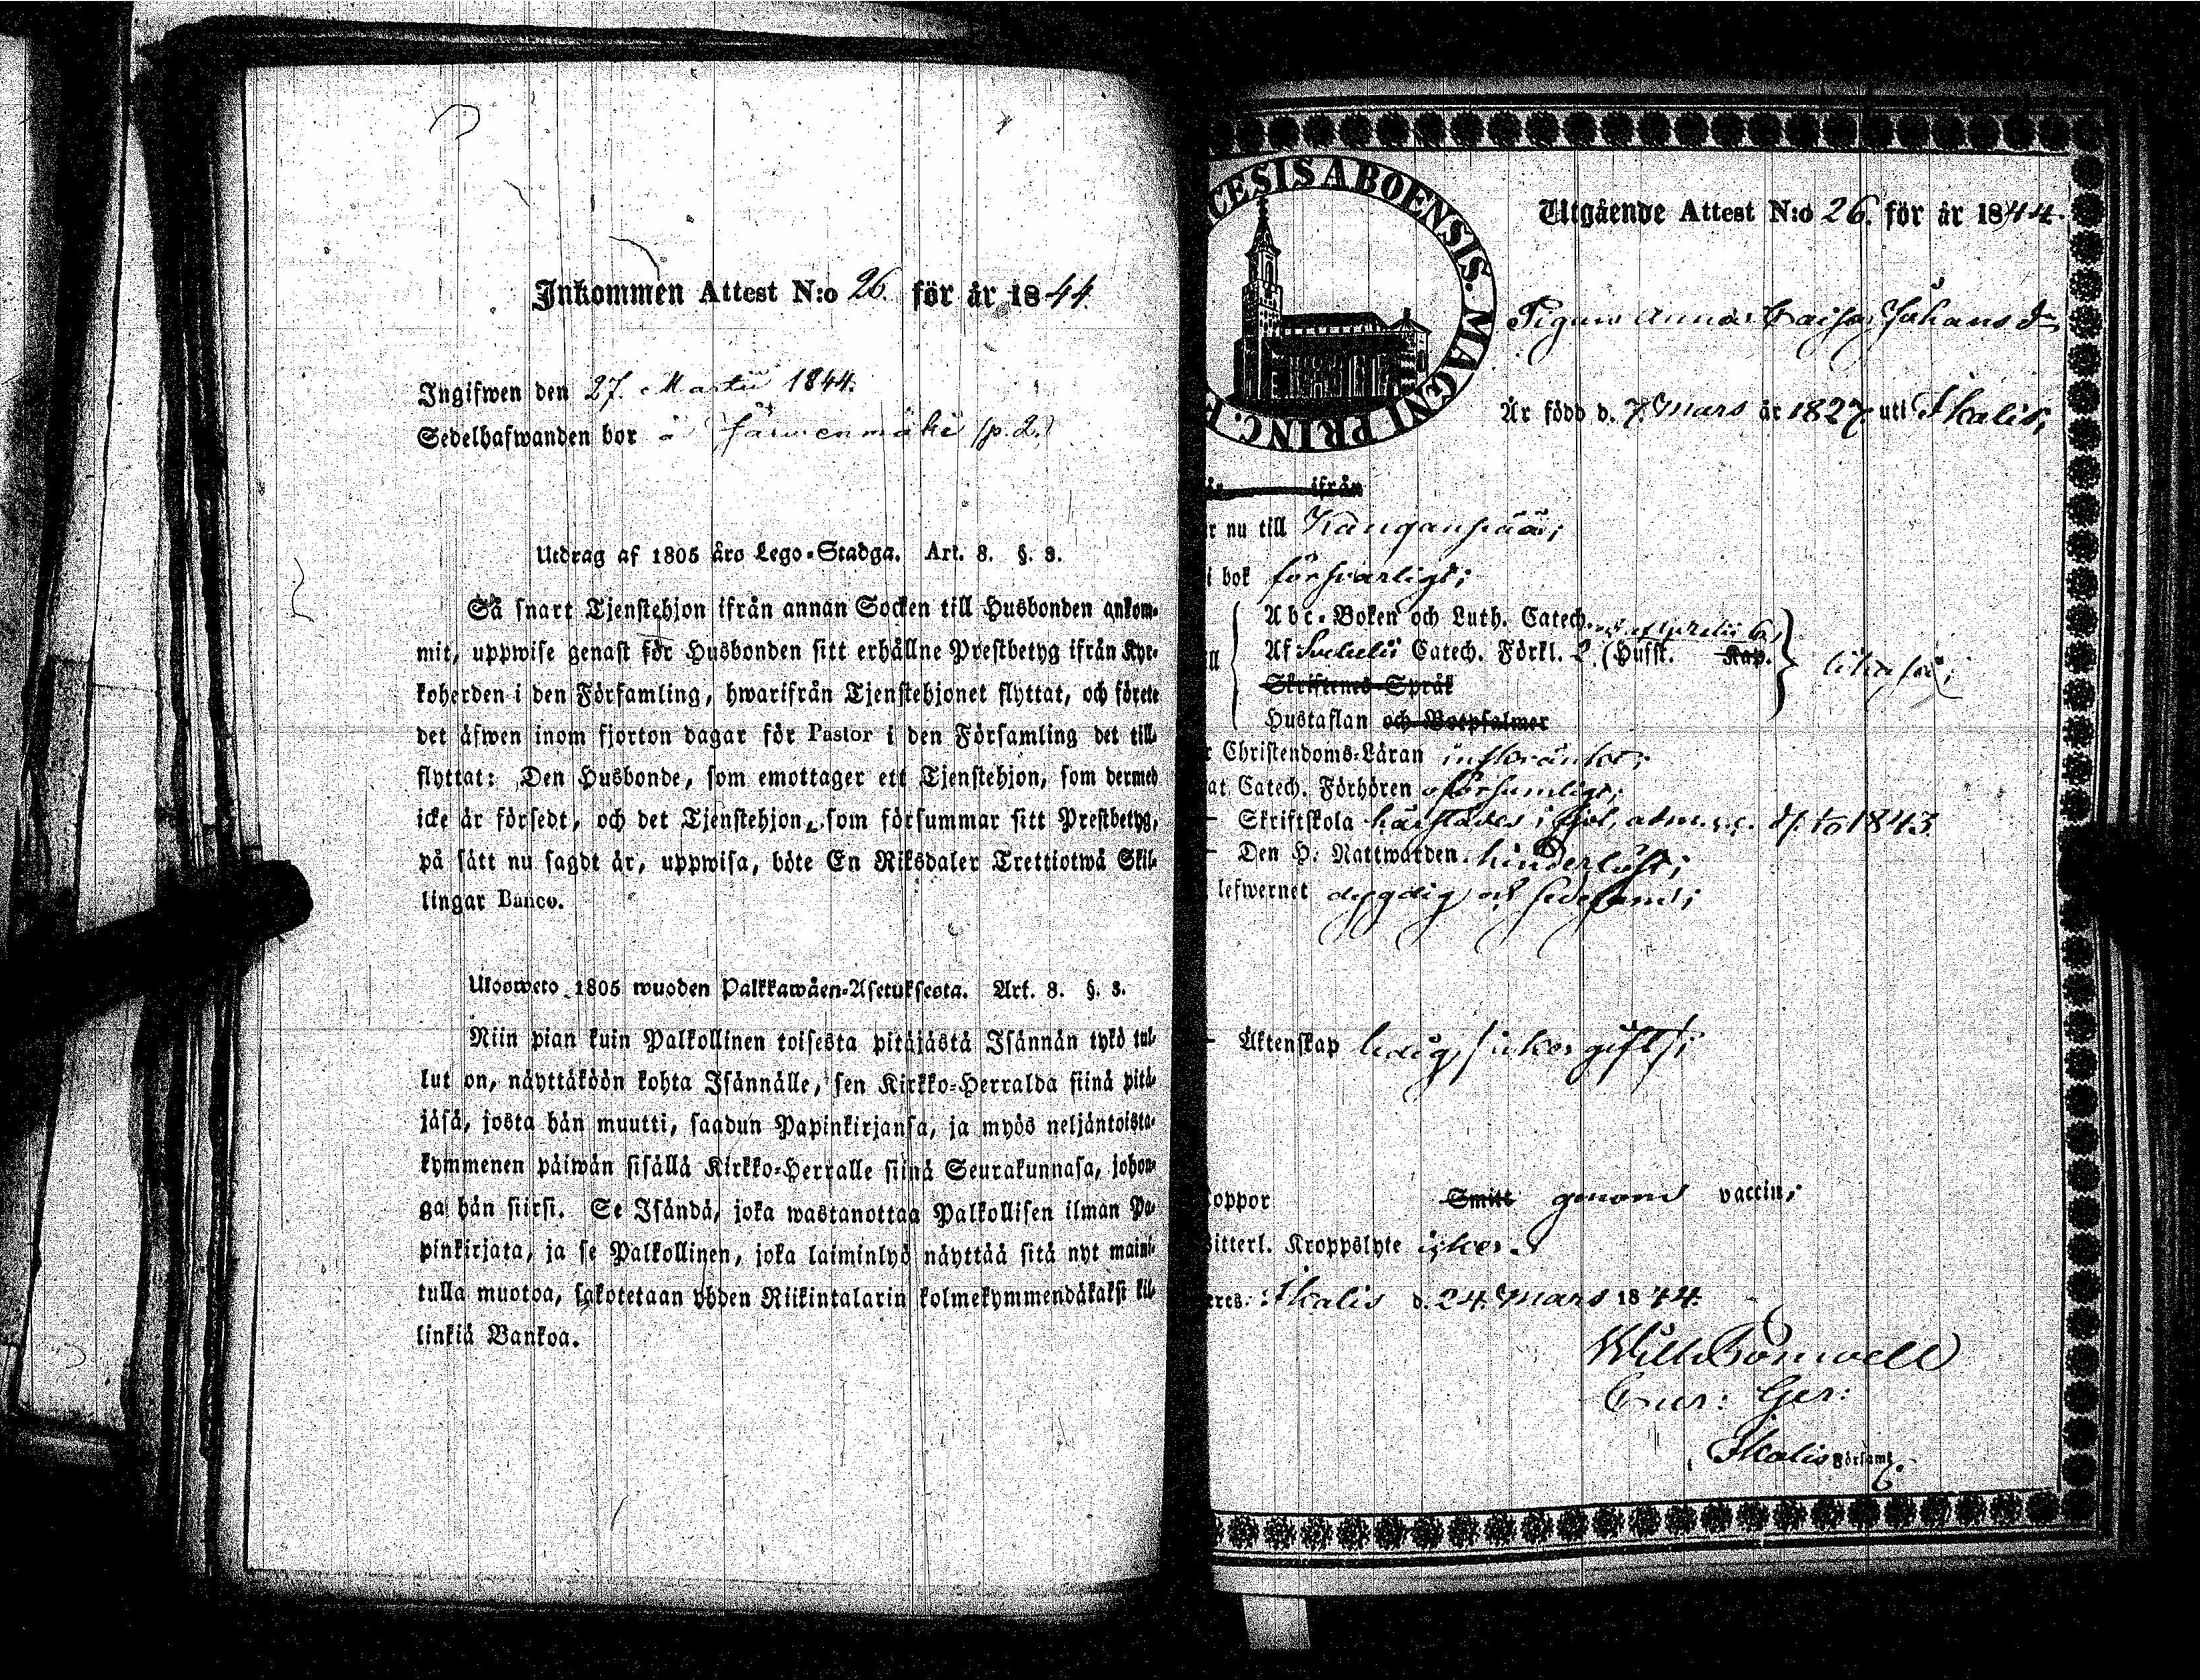 Inkommen Attest N:o 26. för år 1844.
Ingifwen den 27. Martii 1844.
Sedelhafwanden bor å Järwenmäki (p. 2.)
Utdrag af 1805 års Lego-Stadga. Art. 8. §. 3.
Så snart Tjenstehjon ifrån annan Socken till Husbonden ankom-
mit, uppwise genast för Husbonden sitt erhållne Prestbetyg ifrån Kyr-
koherden i den Församling, hwarifrån Tjenstehjonet flyttat, och förete
det äfwen inom fjorton dagar för Pastor i den Församling det till-
flyttat: Den Husbonde, som emottager ett Tjenstehjon, som dermed
icke är försedt, och det Tjenstehjon, som försummar sitt Prestbetyg,
på sätt nu sagdt är, uppwisa, böte En Riksdaler Trettiotwå Skil-
lingar Banco.
Ulosweto 1805 wuoden Palkkawäen-Asetuksesta. Art. 8. §. 3.
Niin pian kuin Palkollinen toisesta pitäjästä Isännän tykö tul-
lut on, näyttäköön kohta Isännälle, sen Kirkko-Herralda siinä pitä-
jäsä, josta hän muutti, saadun Papinkirjansa, ja myös neljäntoista-
kymmenen päiwän sisällä Kirkko-Herralle siinä Seurakunnasa, johon-
ga hän siirsi. Se Isändä, joka wastanottaa Palkollisen ilman Pa-
pinkirjata, ja se Palkollinen, joka laiminlyö näyttää sitä nyt maini-
tulla muotoa, sakotetaan yhden Riikintalarin kolmekymmendäkaksi kil-
linkiä Bankoa.
CESIS ABOENSIS. MAGNI PRINC. F
Utgående Attest N:o 26. för år 1844.
Pigan Anna Caisa Johansd:r
Är född d. 7. Mars år 1827. uti Ikalis,
ifrån
r nu till Kanganpää;
i bok förswarligt;
Abc-Boken och Luth. Catech.
Af Svebelii Catech. Förkl. L. (Hufst. Kap.
Skriftenes Språk
Hustaflan och Botpsalmer
r Christendoms-Läran inskränkt;
at Catech. Förhören oförsumligt;
Skriftskola härstädes i 1843
Den H. Nattwarden hinderlöst;
lefwernet dygdig och sedesam;
Äktenskap ledig, icke gift;
oppor Smitt genom vaccin;
itterl. Kroppslyte icke.
eres. Ikalis d. 24. Mars 1844.
Wilh
Cur: Ger:
i Ikalis Församl.